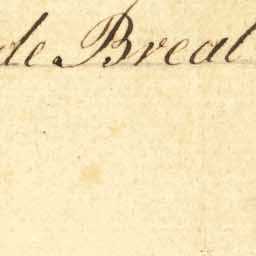 de Breal